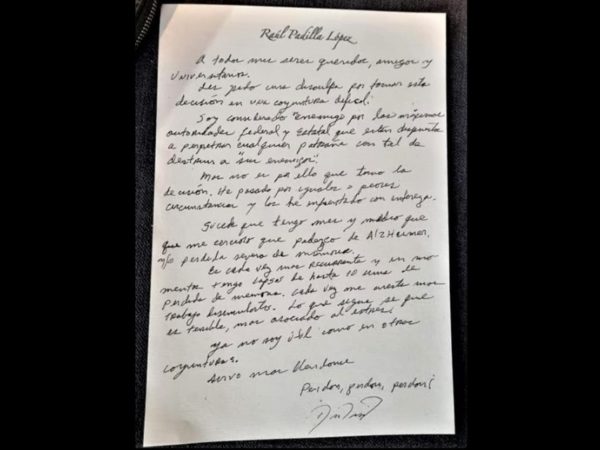 Raúl Padilla López
A todos mis seres queridos, amigos y
Universitarios.
Les pido una disculpa por tomar esta
decisión en una coyuntura difícil.
Soy considerado "enemigo" por las máximas
autoridades federal y estatal que están dispuestas
a perpetrar cualquier patraña con tal de
destruir a "sus enemigos".
Mas no es por ello que tomo la
decisión. He pasado por iguales o peores
circunstancias y los he enfrentado con entereza.
Sucede que tengo mes y medio que
que me cercioro que padezco de Alzheimer
y/o perdida severa de memoria.
Es cada vez mas recurrente y en mo
mentos tengo lapsos de hasta 10 de
perdida de memoria. Cada vez me cuesta mas
trabajo disimularlos. Lo que sigue, se que
es terrible, mas asociado al estres.
Ya no soy útil como en otras
coyunturas.
Sirvo mas
Perdon, perdon, perdon!